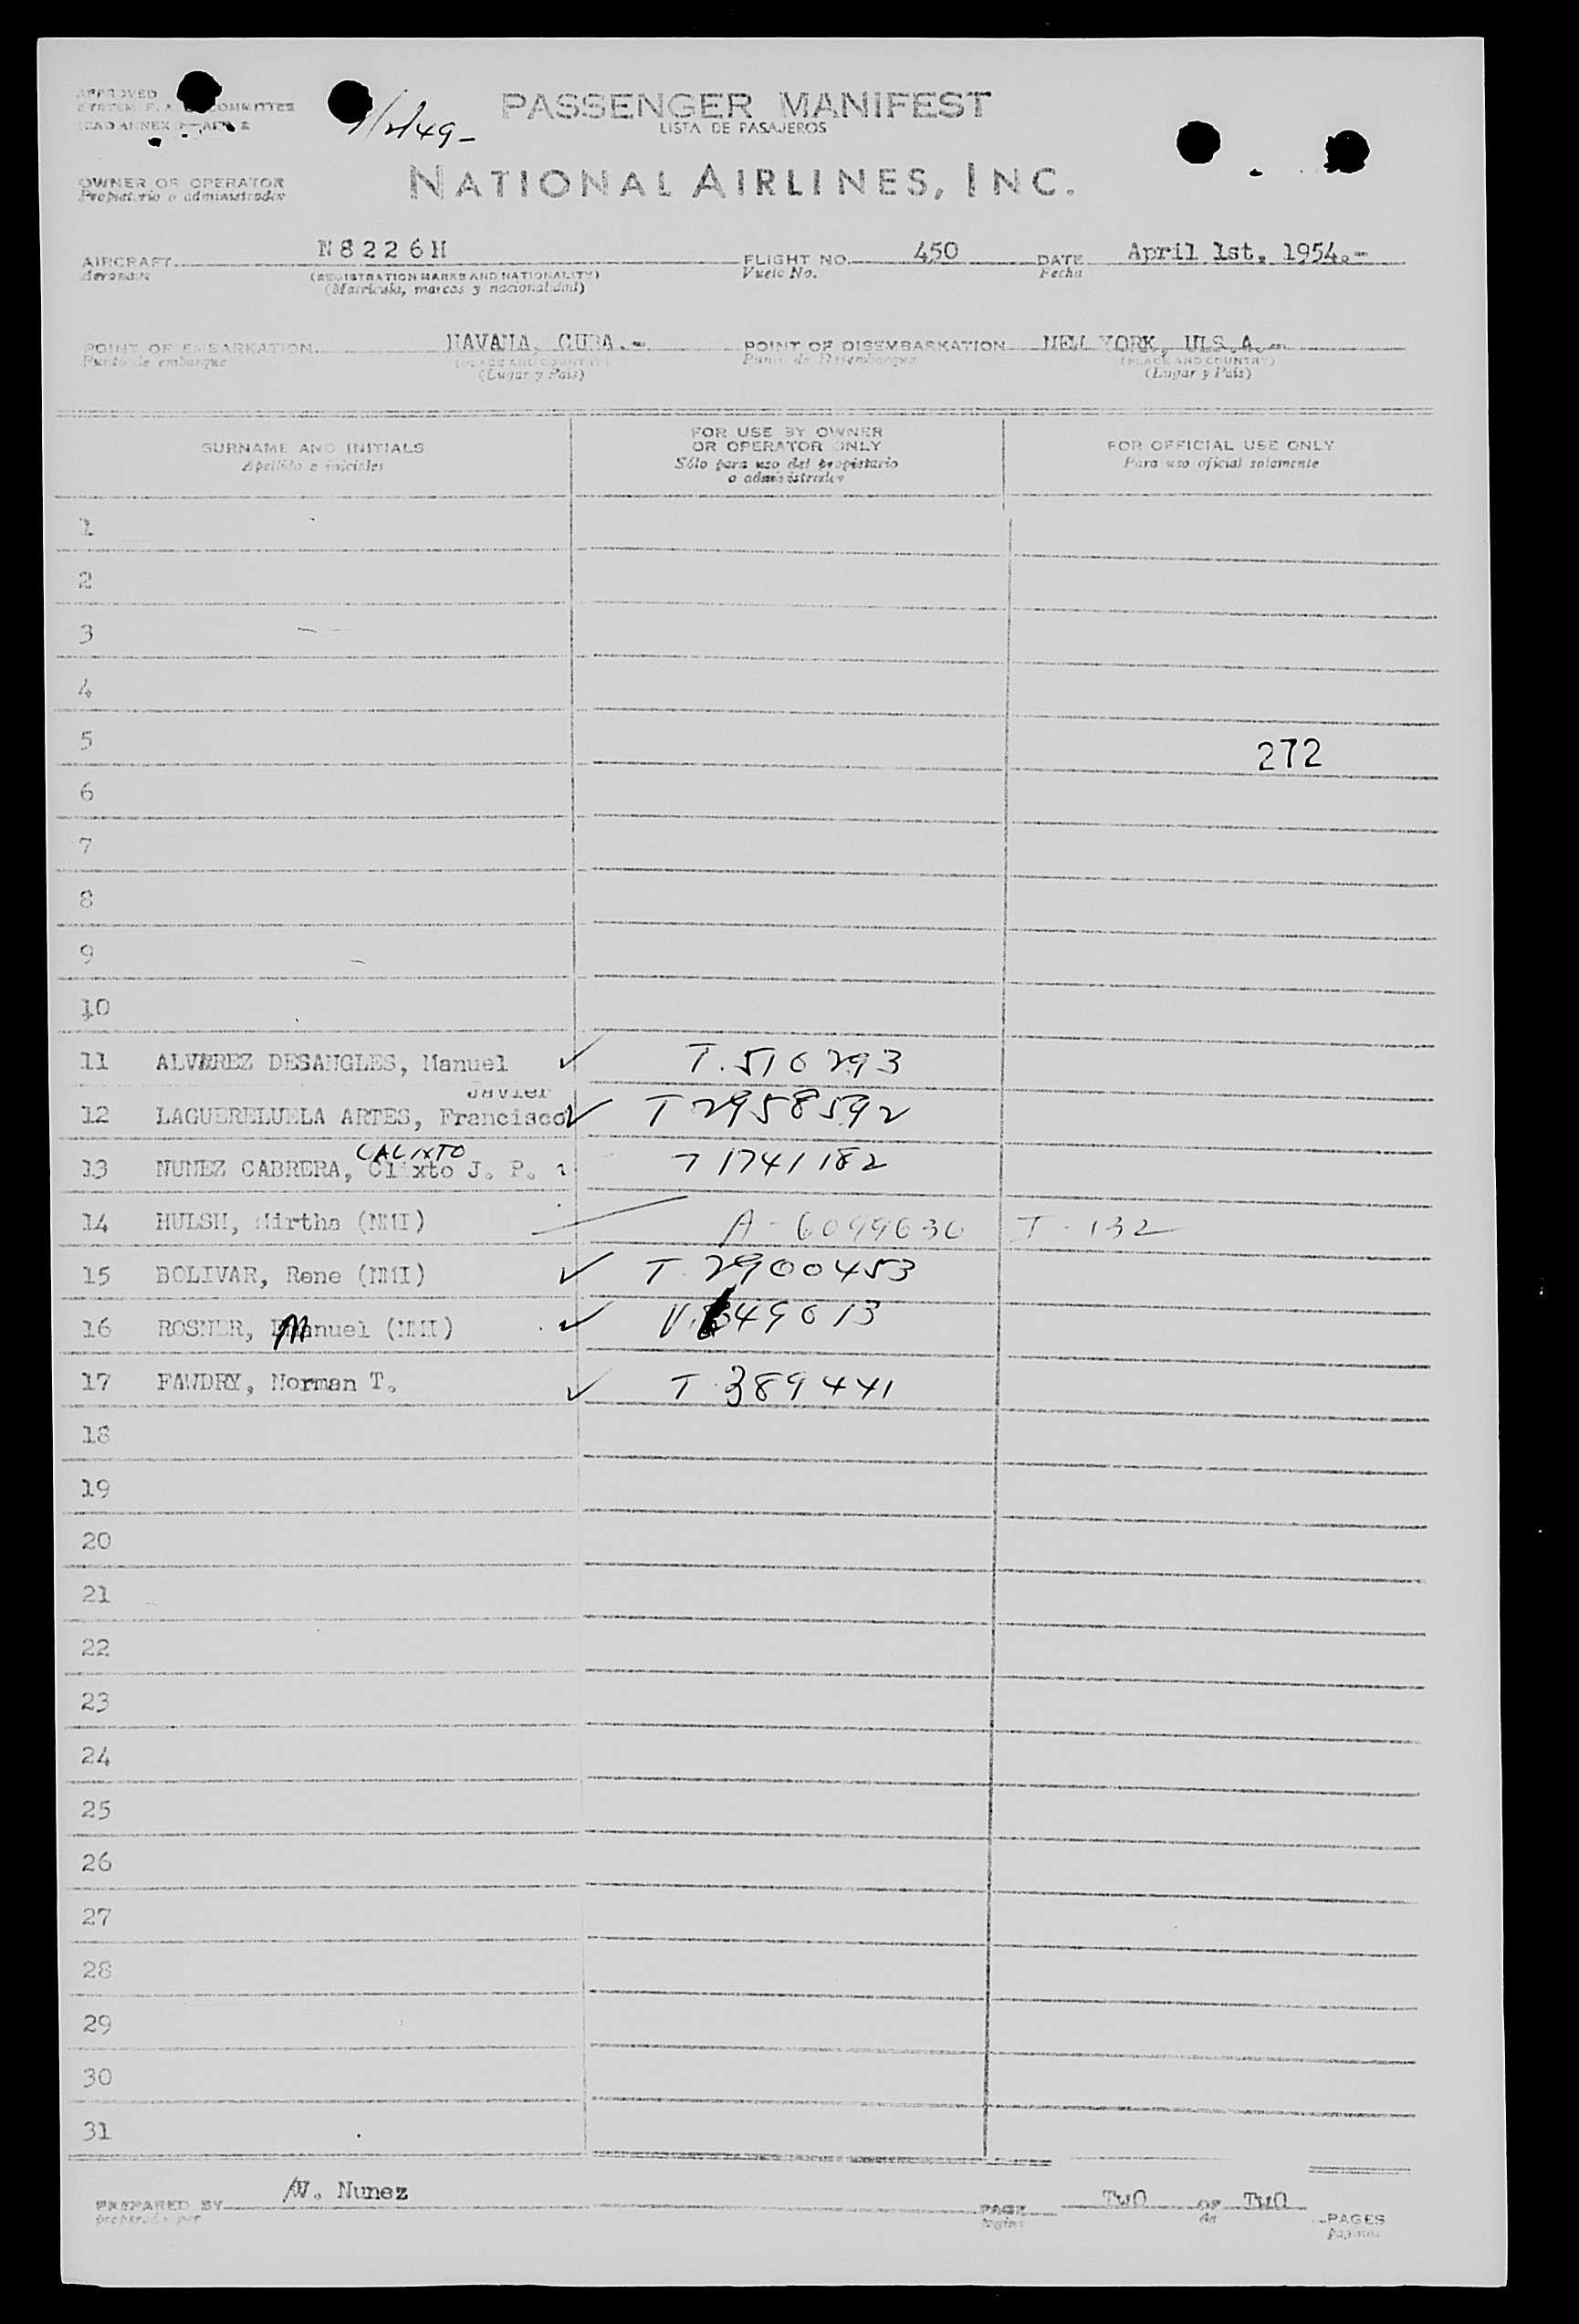 APPROVED
SYSTEM F. A. COMMITTEE
ICAO ANNEX 9—APP. 2
/2/49-
PASSENGER MANIFEST
LISTA DE PASAJEROS
OWNER OR OPERATOR
Propietario o administrador
NATIONAL AIRLINES, INC.
AIRCRAFT N8226H FLIGHT NO. 450 DATE April 1st, 1954.-
Aeronave (REGISTRATION MARKS AND NATIONALITY) Vuelo No. Fecha
(Matrícula, marcas y nacionalidad)
POINT OF EMBARKATION HAVANA, CUBA.- POINT OF DISEMBARKATION NEW YORK, U.S.A.-
Punto de embarque (PLACE AND COUNTRY) Punto de Desembarque (PLACE AND COUNTRY)
(Lugar y País) (Lugar y País)
SURNAME AND INITIALS
Apellido e iniciales
FOR USE BY OWNER
OR OPERATOR ONLY
Sólo para uso del propietario
o administrador
FOR OFFICIAL USE ONLY
Para uso oficial solamente
1
2
3
4
5 272
6
7
8
9
10
11 ALVAREZ DESANGLES, Manuel ✓ T.510293
Javier
12 LAGUERELUELA ARTES, Francisco ✓ T2958592
CALIXTO
13 NUNEZ CABRERA, Clixto J. P. T1741182
14 HULSH, Mirtha (NMI) A-6099630 T-132
15 BOLIVAR, Rene (NMI) ✓ T.2900453
16 ROSNER, Emanuel (NMI) ✓ V.849013
17 FAWDRY, Norman T. ✓ T.389441
18
19
20
21
22
23
24
25
26
27
28
29
30
31
PREPARED BY W. Nunez PAGE TWO OF TWO PAGES
preparado por página de páginas